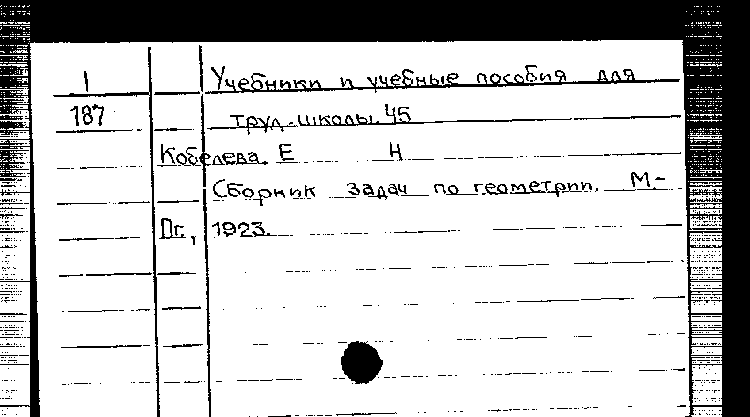 1 Учебники и учебные пособия для
187 труд.школы. Ч5
Кобелева. Е Н
Сборник задач по геометрии. М-
Пг., 1923.